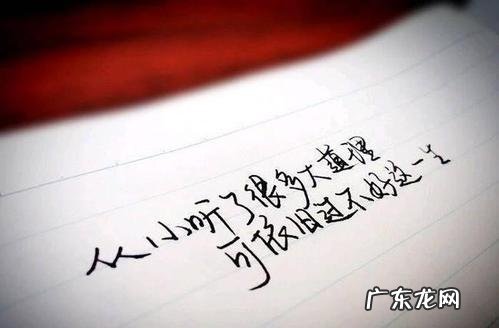 从小听了很多大道理
可依旧过不好这一生
广东龙网